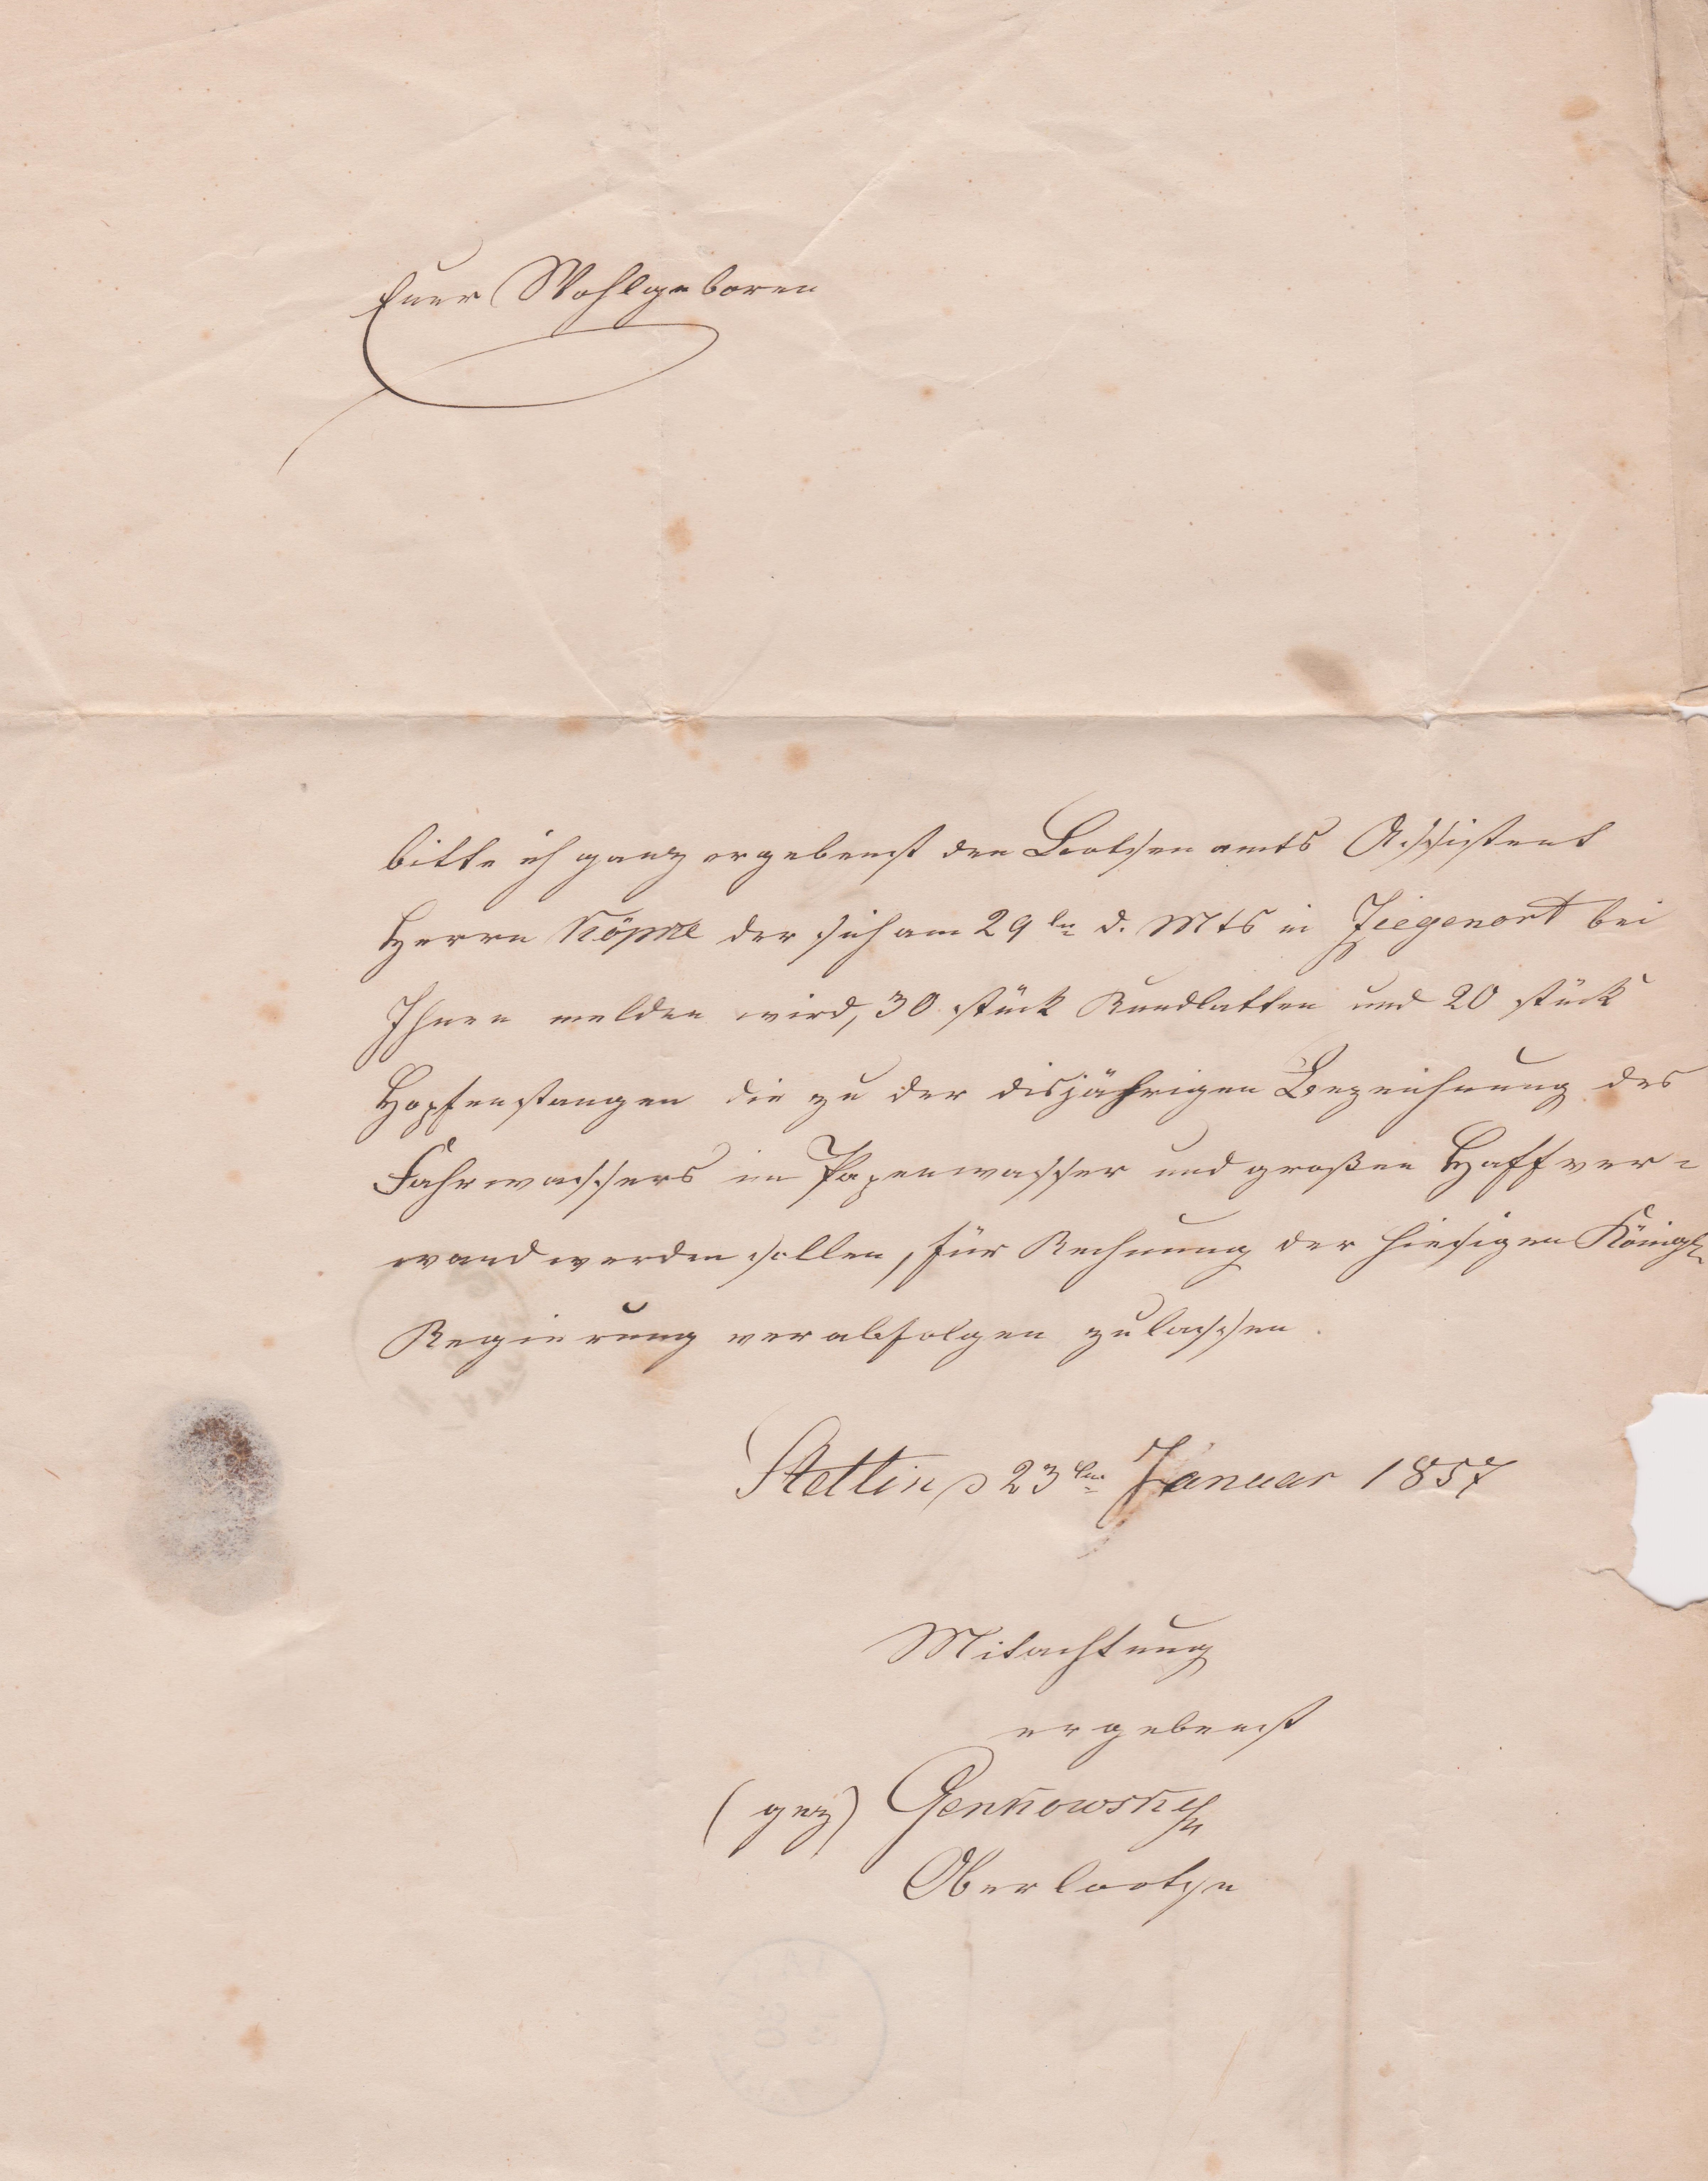 Euer Wohlgeboren
bitte ich ganz ergebenst den Lootsenamts Assistent
Herrn Köpke der sich am 29ten d. Mts in Ziegenort bei
Ihnen melden wird, 30 stück Bandlatten und 20 stück
Hopfenstangen die zu der disjährigen Bezeichnung des
Fahrwassers im Papenwasser und großen Haff ver-
wand werden sollen, für Rechnung der hiesigen Königl.
Regierung verabfolgen zulassen.
Stettin d 23ten Januar 1857
Mitachtung
ergebenst
(gez) Genkowsky
Oberlootse